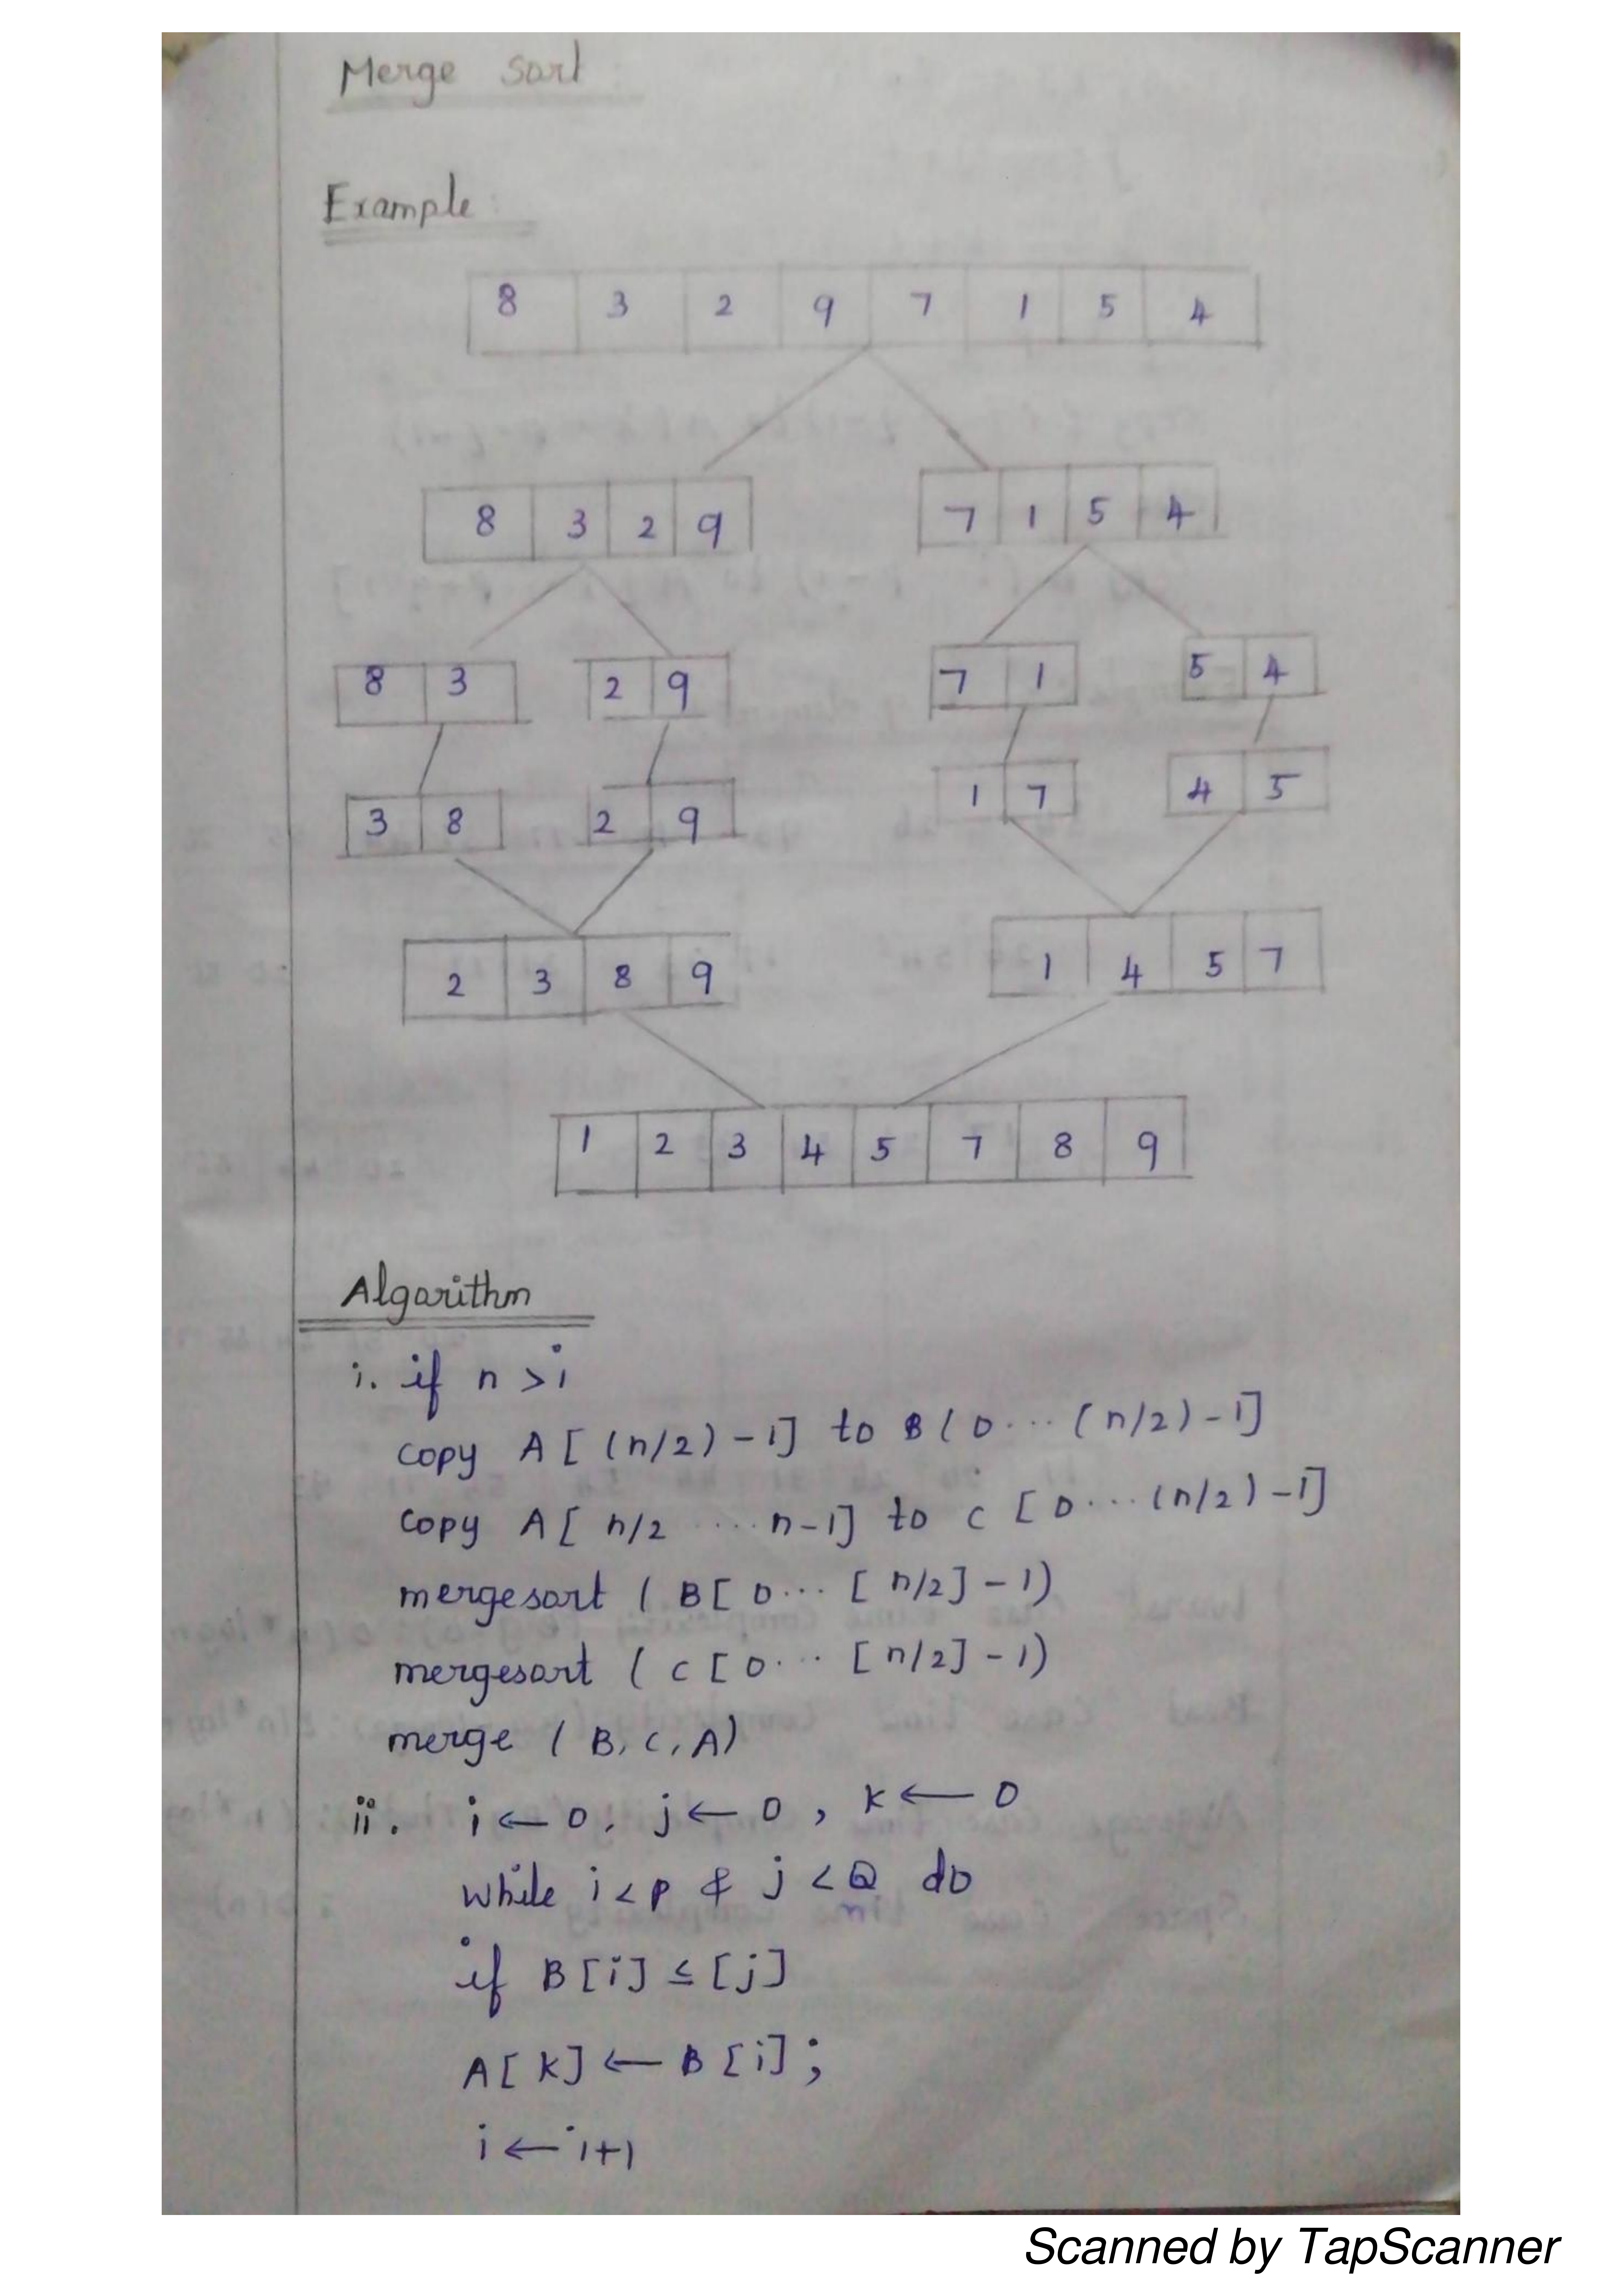 Merge sort
Example:
8 3 2 9 7 1 5 4
8 3 2 9 7 1 5 4
8 3 2 9 7 1 5 4
3 8 2 9 1 7 4 5
2 3 8 9 1 4 5 7
1 2 3 4 5 7 8 9
Algorithm
i. if n > i
copy A [ (n/2) - 1] to B ( 0 ... ( n/2) - 1]
copy A [ n/2 ... n-1] to C [ 0 ... (n/2) - 1]
mergesort ( B [ 0 ... [ n/2] - 1)
mergesort ( C [ 0 ... [ n/2] - 1)
merge ( B, C, A)
ii. i ← 0, j ← 0 , K ← 0
while i < p & j < Q do
if B [i] ≤ [j]
A [ K] ← B [i] ;
i ← i+1
Scanned by TapScanner